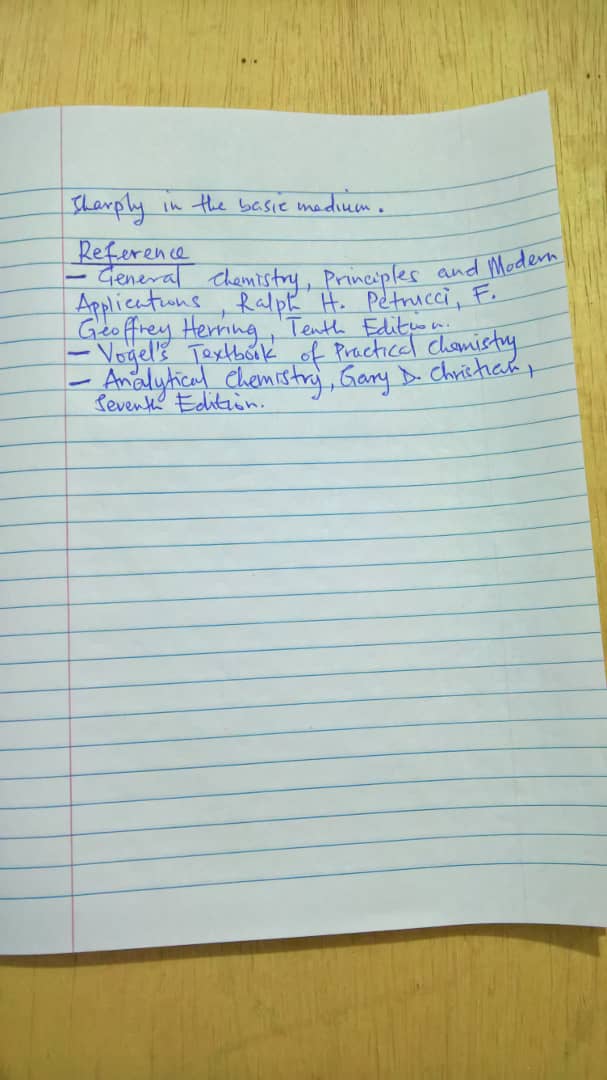 Sharply in the basic medium.
Reference
- General Chemistry, Principles and Modern
Applications, Ralph H. Petrucci, F.
Geoffrey Herring, Tenth Edition.
- Vogel's Textbook of Practical Chemistry
- Analytical Chemistry, Gary D. Christian,
Seventh Edition.